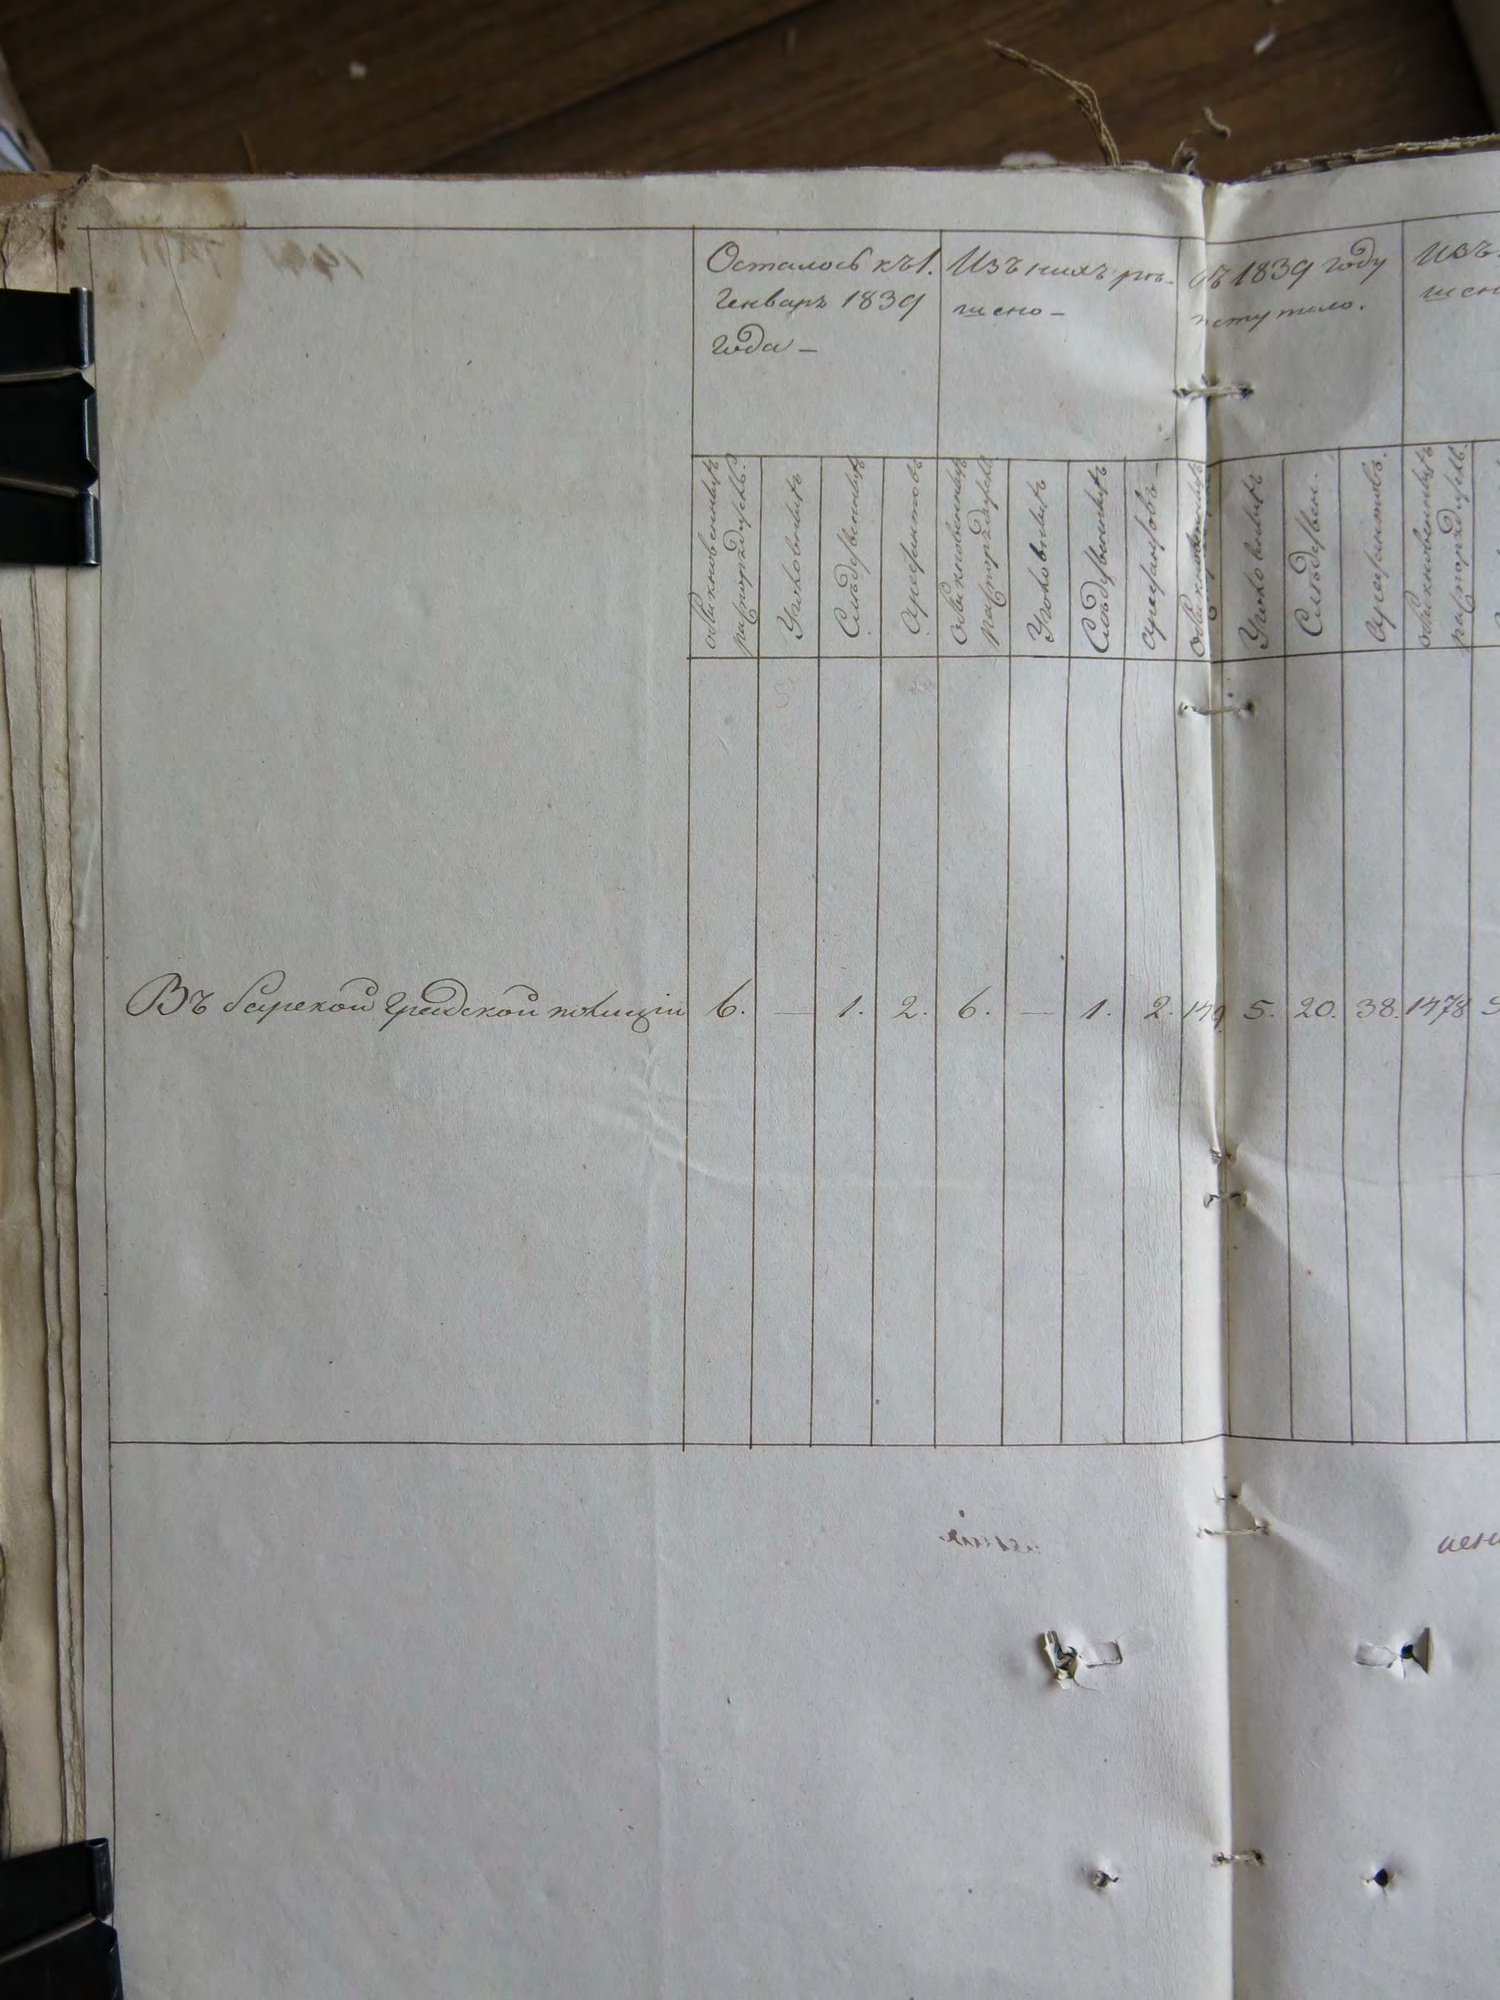 Осталось къ 1.
Генваря 1839
года –
Изъ нихъ рѣ-
шено –
въ 1839 году
поступило.
Изъ
шен
обыкновенныхъ
распоряжен.
Уголовныхъ
Слѣдственныхъ
Арестантовъ
Обыкновенныхъ
распоряжен.
Уголовныхъ
Слѣдственныхъ
арестантовъ –
Обыкновенныхъ
Уголовныхъ
Слѣдствен.
Арестантовъ.
Обыкновенныхъ
распоряжен.
Въ барской градской полиціи 6. — 1. 2. 6. — 1. 2. 149 5. 20. 38. 1478 5